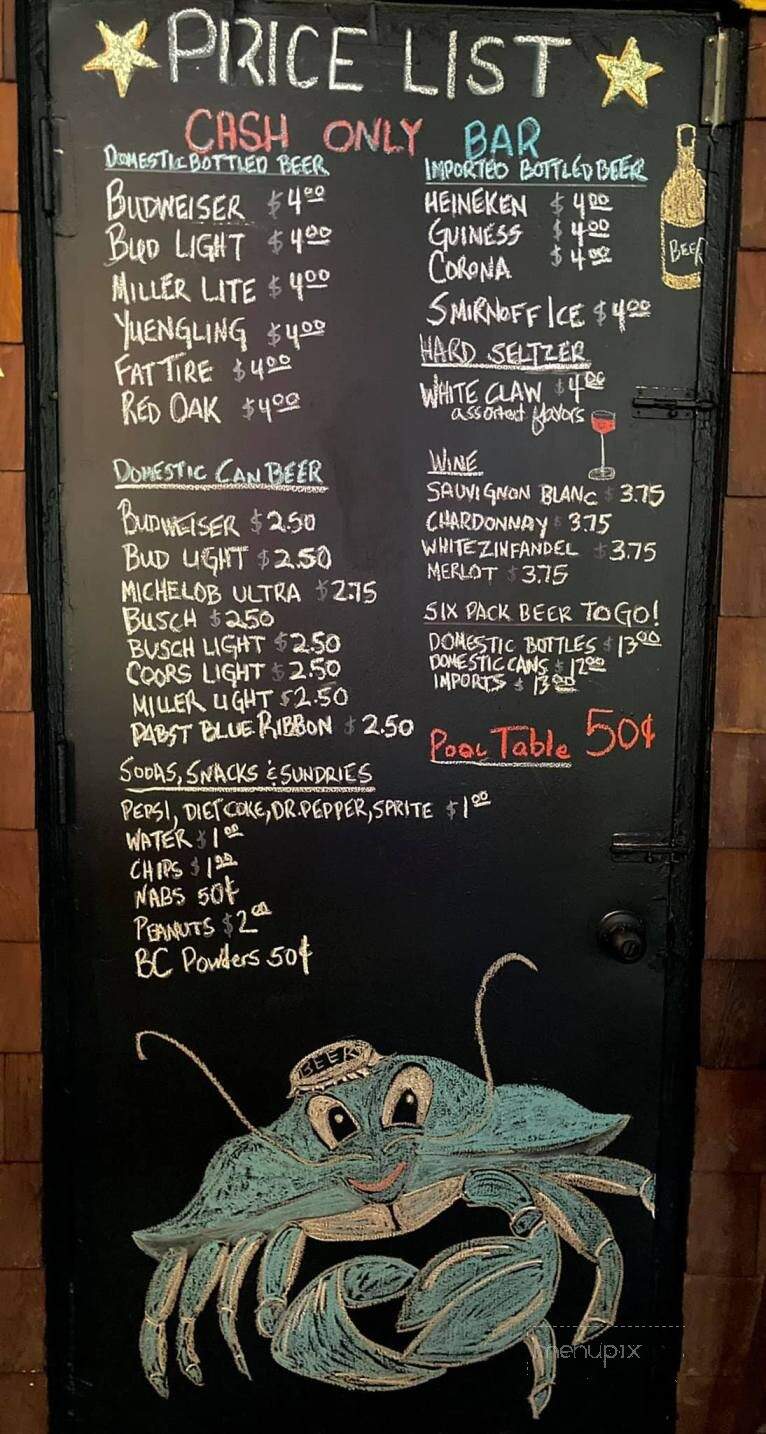 PRICE LIST
CASH ONLY BAR
DOMESTIC BOTTLED BEER
BUDWEISER $4.00
BUD LIGHT $4.00
MILLER LITE $4.00
YUENGLING $4.00
FAT TIRE $4.00
RED OAK $4.00
DOMESTIC CAN BEER
BUDWEISER $2.50
BUD LIGHT $2.50
MICHELOB ULTRA $2.75
BUSCH $2.50
BUSCH LIGHT $2.50
COORS LIGHT $2.50
MILLER LIGHT $2.50
PABST BLUE RIBBON $2.50
SODAS, SNACKS & SUNDRIES
PEPSI, DIET COKE, DR. PEPPER, SPRITE $1.00
WATER $1.00
CHIPS $1.00
NABS 50¢
PEANUTS $2.00
BC Powders 50¢
IMPORTED BOTTLED BEER
HEINEKEN $4.00
GUINESS $4.00
CORONA $4.00
SMIRNOFF ICE $4.00
HARD SELTZER
WHITE CLAW $4.00
assorted flavors
WINE
SAUVIGNON BLANC $3.75
CHARDONNAY $3.75
WHITE ZINFANDEL $3.75
MERLOT $3.75
SIX PACK BEER TO GO!
DOMESTIC BOTTLES $13.00
DOMESTIC CANS $12.00
IMPORTS $13.00
Pool Table 50¢
BEER
BEER
menupix